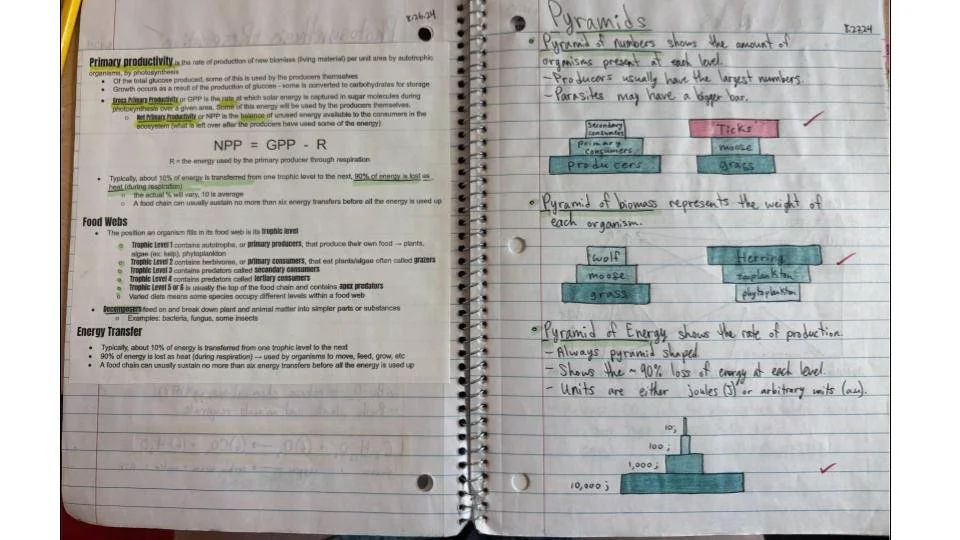 8.26.24
Primary productivity is the rate of production of new biomass (living material) per unit area by autotrophic
organisms, by photosynthesis
Of the total glucose produced, some of this is used by the producers themselves
Growth occurs as a result of the production of glucose - some is converted to carbohydrates for storage
Gross Primary Productivity or GPP is the rate at which solar energy is captured in sugar molecules during
photosynthesis over a given area. Some of this energy will be used by the producers themselves.
Net Primary Productivity or NPP is the balance of unused energy available to the consumers in the
ecosystem (what is left over after the producers have used some of the energy)
NPP = GPP - R
R = the energy used by the primary producer through respiration
Typically, about 10% of energy is transferred from one trophic level to the next, 90% of energy is lost as
heat (during respiration)
the actual % will vary, 10 is average
A food chain can usually sustain no more than six energy transfers before all the energy is used up
Food Webs
The position an organism fills in its food web is its trophic level
Trophic Level 1 contains autotrophs, or primary producers, that produce their own food → plants,
algae (ex: kelp), phytoplankton
Trophic Level 2 contains herbivores, or primary consumers, that eat plants/algae often called grazers
Trophic Level 3 contains predators called secondary consumers
Trophic Level 4 contains predators called tertiary consumers
Trophic Level 5 or 6 is usually the top of the food chain and contains apex predators
Varied diets means some species occupy different levels within a food web
Decomposers feed on and break down plant and animal matter into simpler parts or substances
Examples: bacteria, fungus, some insects
Energy Transfer
Typically, about 10% of energy is transferred from one trophic level to the next
90% of energy is lost as heat (during respiration) → used by organisms to move, feed, grow, etc
A food chain can usually sustain no more than six energy transfers before all the energy is used up
Pyramids
8.27.24
Pyramid of numbers shows the amount of
organisms present at each level.
- Producers usually have the largest numbers.
- Parasites may have a bigger bar.
Secondary
consumers
Primary
consumers
Producers
Ticks
moose
grass
Pyramid of biomass represents the weight of
each organism.
wolf
moose
grass
Herring
zooplankton
phytoplankton
Pyramid of Energy shows the rate of production.
- Always pyramid shaped
- Shows the ~ 90% loss of energy at each level.
- Units are either joules (J) or arbitrary units (au).
10 j
100 j
1,000 j
10,000 j